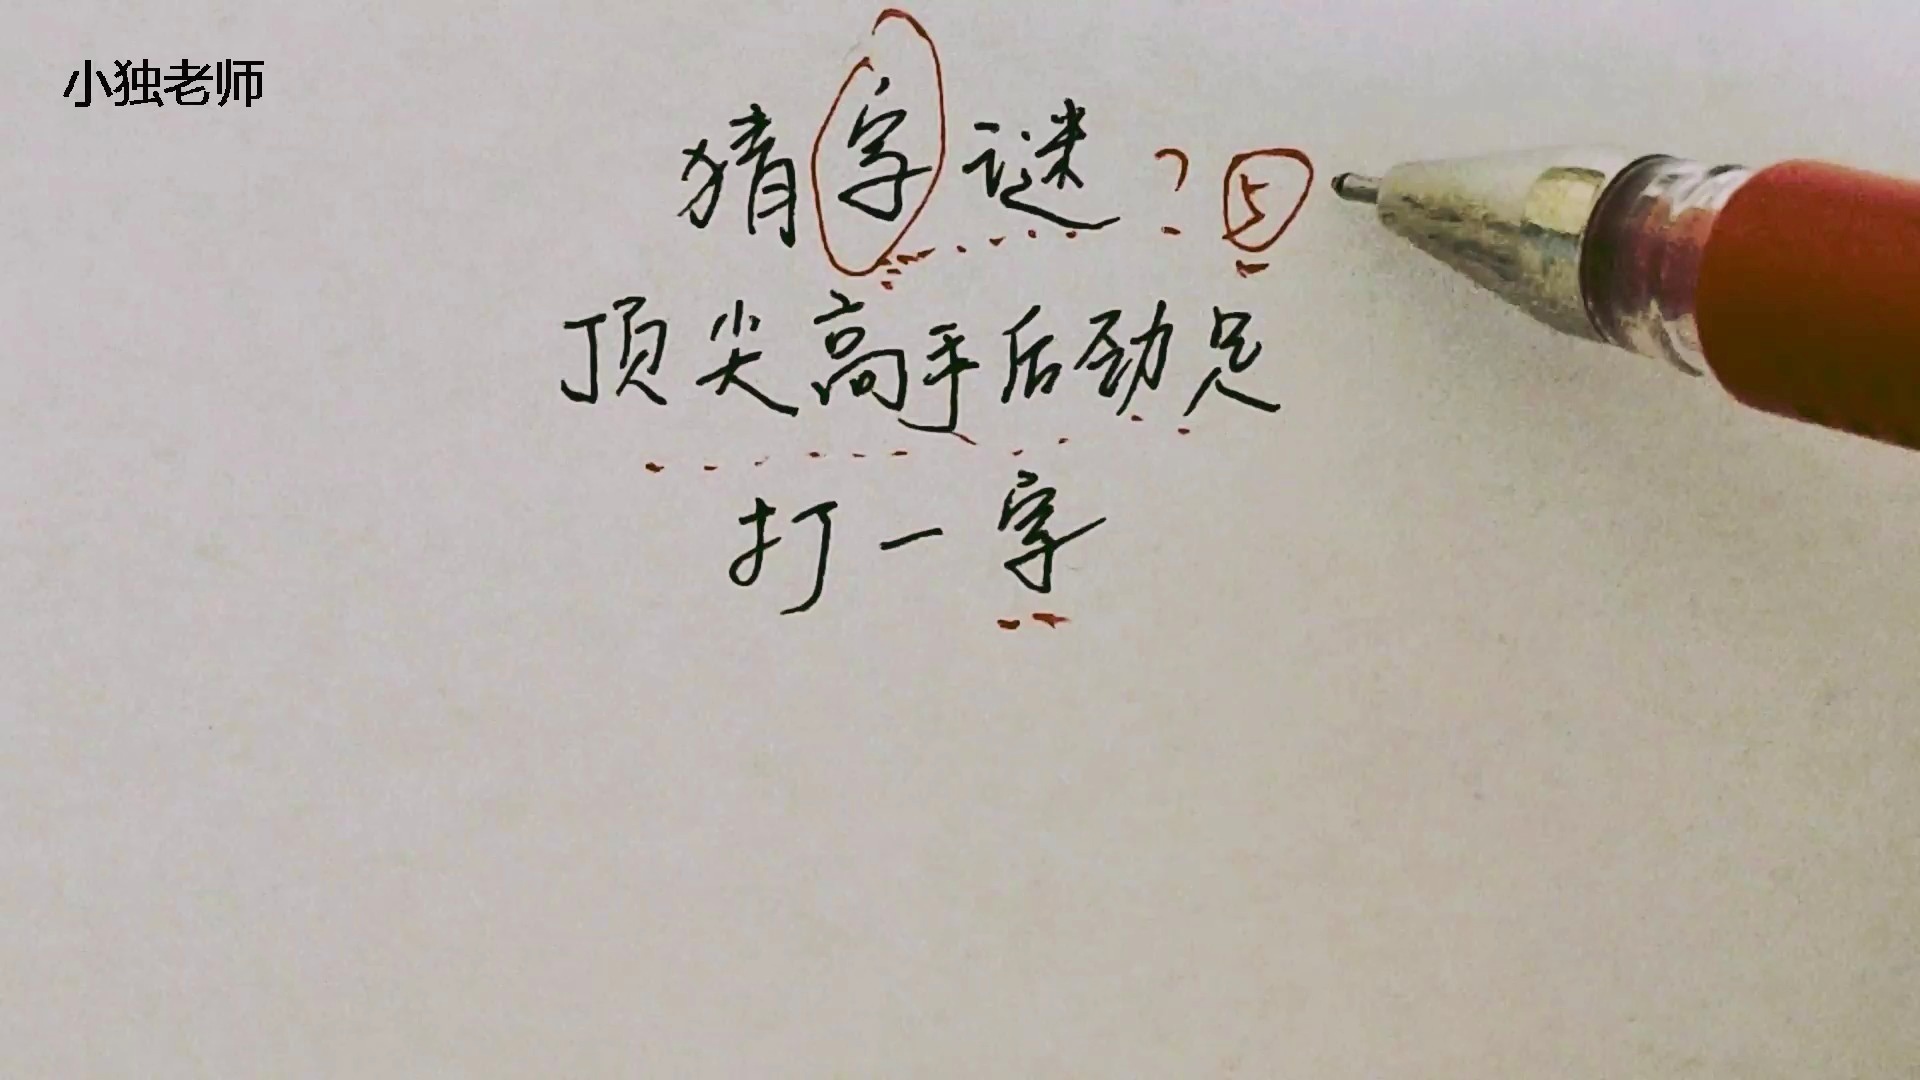 小独老师
猜字谜？⑤
顶尖高手后劲足
打一字